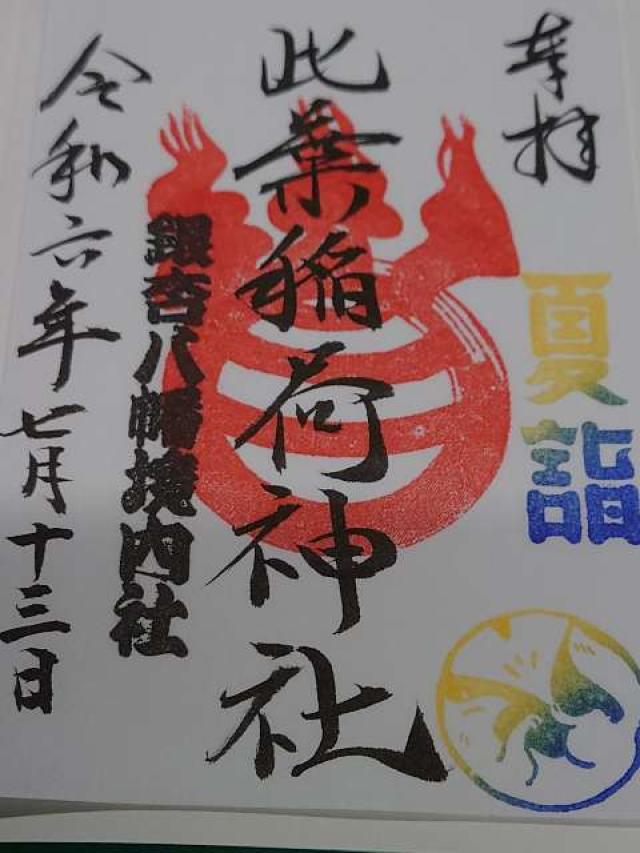 奉拝
夏詣
此葉稲荷神社
銀杏八幡境内社
令和六年七月十三日